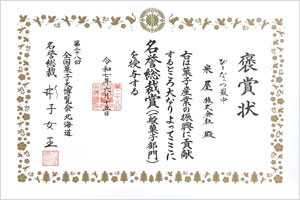 褒賞状
ぴーなっつ最中
米屋株式会社 殿
右は菓子産業の振興に貢献
するところ大なりよってここに
名誉総裁賞(一般菓子部門)
を授与する
令和七年六月十五日
第二十八回
全国菓子大博覧会北海道
名誉総裁